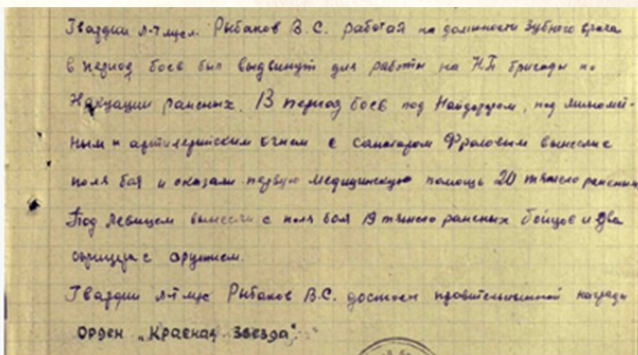 Гвардии л-т м/сл. Рыбаков В.С. работая на должности Зубного врача
в период боев был выдвинут для работы на НП бригады по
эвакуации раненых. В период боев под , под миномет-
ным и артилерийским огнем с санитаром Фроловым вынесли с
поля боя и оказали первую медицинскую помощь 20 тяжело раненым
Под Левицем вынесли с поля боя 19 тяжело раненых бойцов и два
офицера с оружием.
Гвардии л-т м/с Рыбаков В.С. достоин правительственной награды
орден „Красная звезда".